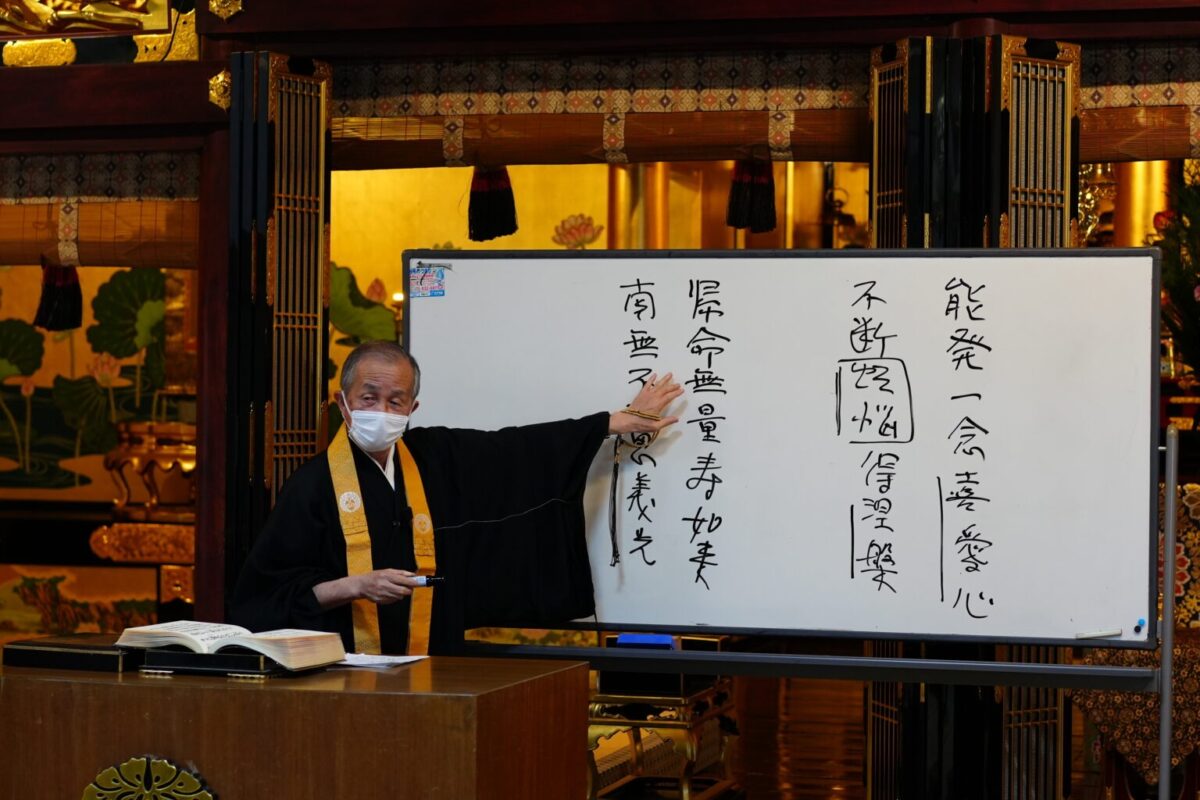 能発一念喜愛心
不断煩悩得涅槃
帰命無量寿如来
南無不思義光